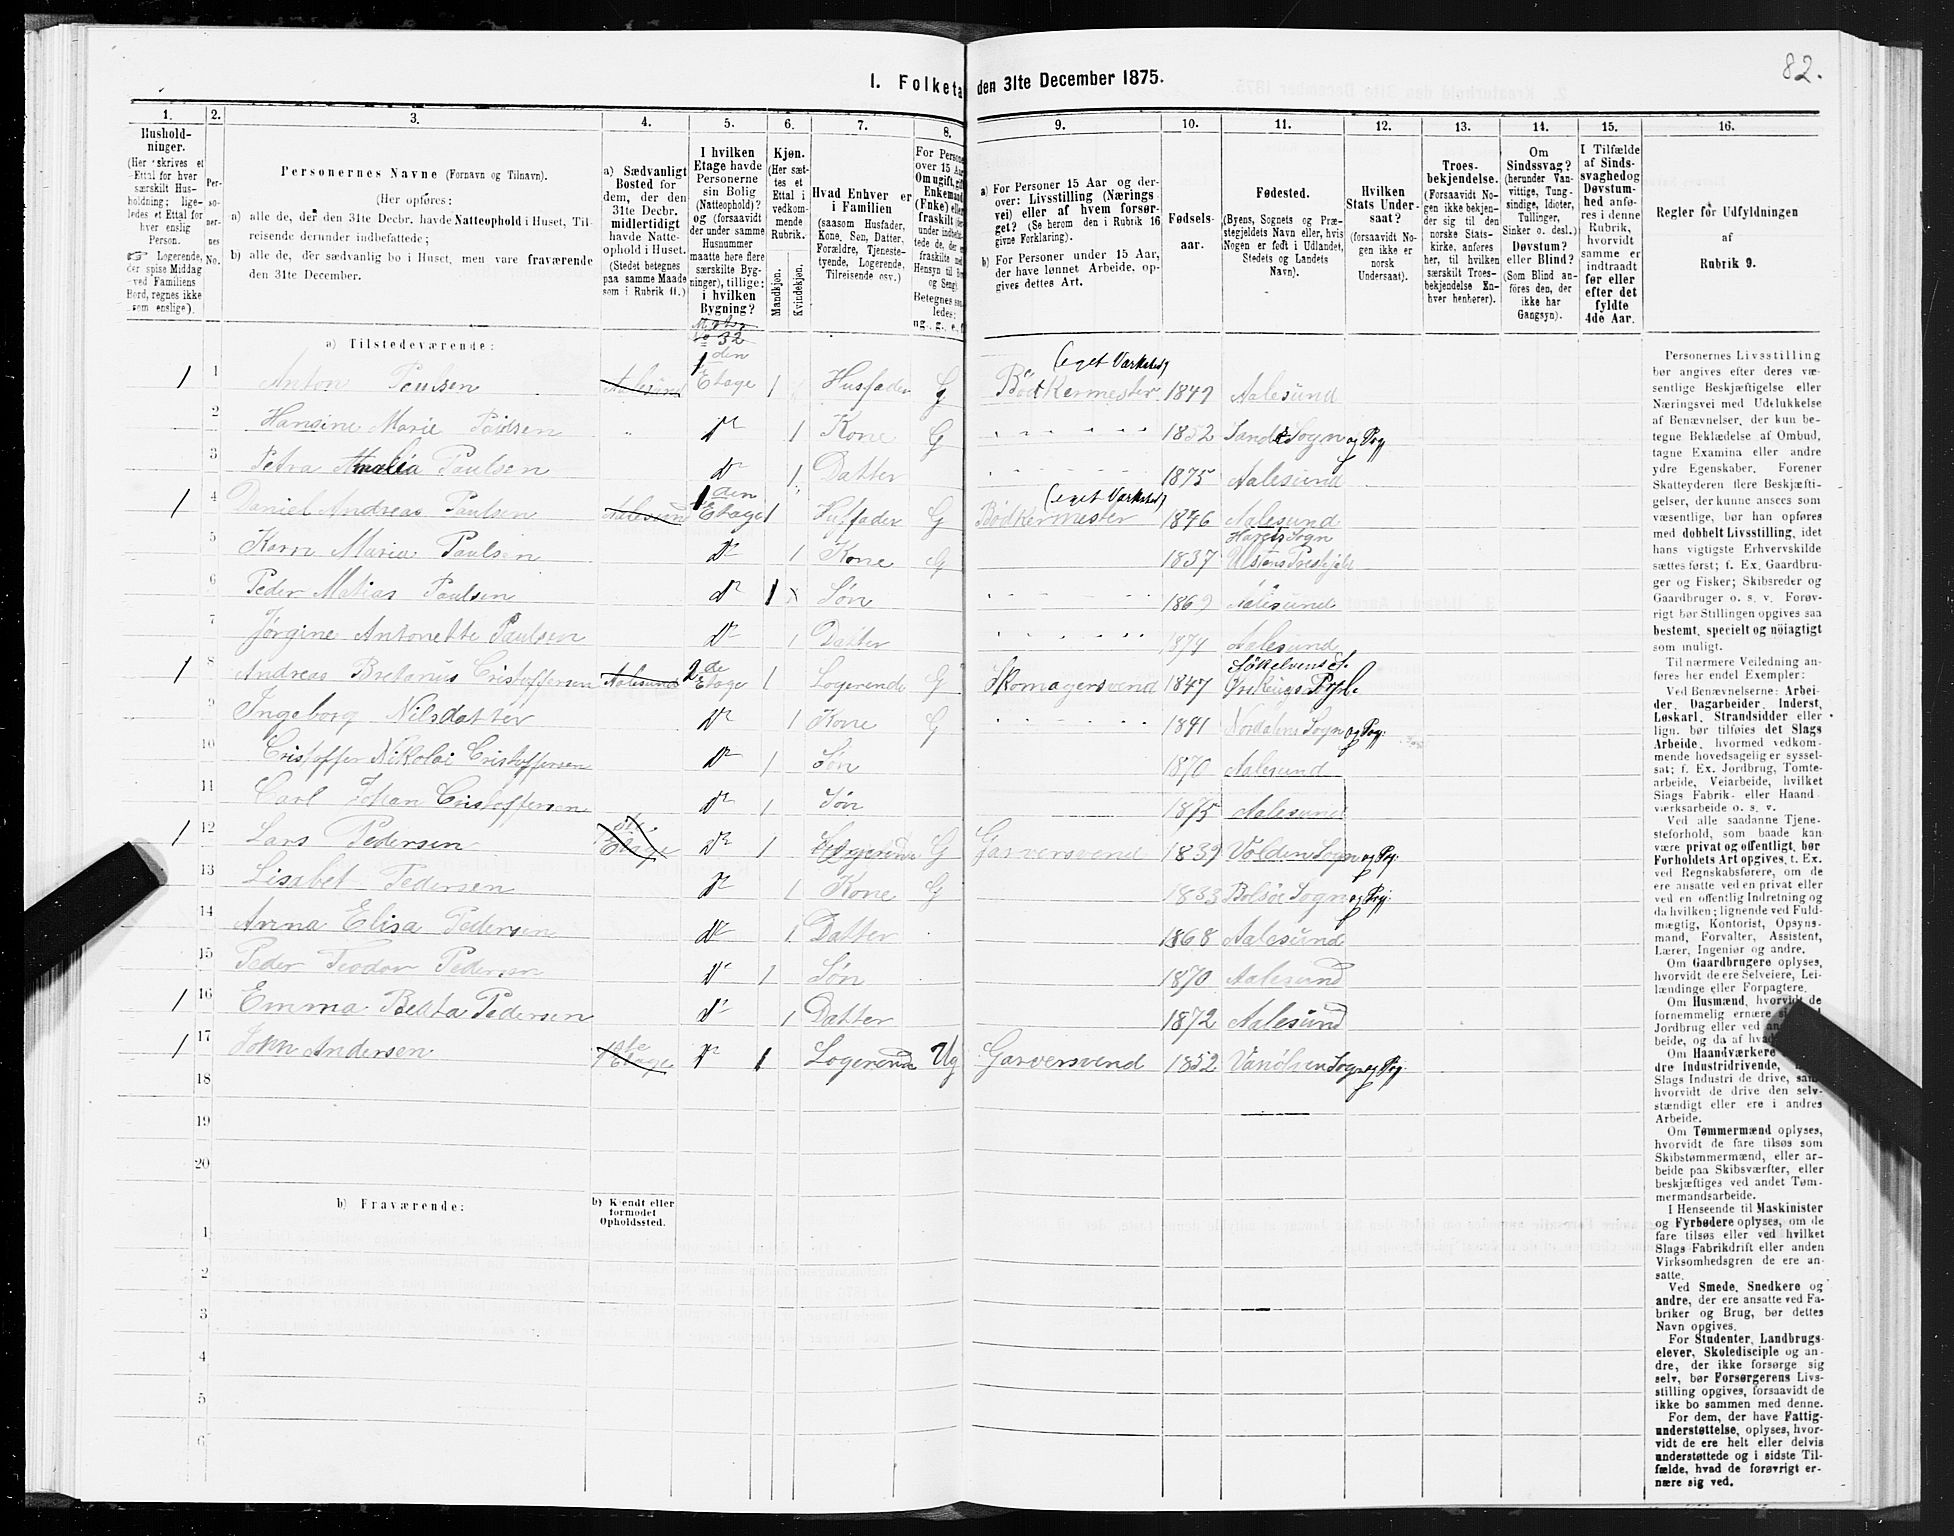 82.
I. Folketa den 31te December 1875.
1. 2. 3. 4. 5. 6. 7. 8. 9. 10. 11. 12. 13. 14. 15. 16.
Hushold-
ninger.
(Her skrives et
Ettal for hver
særskilt Hus-
holdning; lige-
ledes et Ettal for
hver enslig
Person.
☞ Logerende,
der spise Middag
ved Familiens
Bord, regnes ikke
som enslige).
Per-
so-
ner-
nes
No.
Personernes Navne (Fornavn og Tilnavn).
(Her opføres:
a) alle de, der den 31te Decbr. havde Natteophold i Huset, Til-
reisende derunder indbefattede;
b) alle de, der sædvanlig bo i Huset, men vare fraværende
den 31te December.
a) Sædvanligt
Bosted for
dem, der den
31te Decbr.
midlertidigt
havde Natte-
ophold i Huset.
(Stedet betegnes
paa samme Maade
som i Rubrik 11.)
I hvilken
Etage havde
Personerne
sin Bolig
(Natteophold)?
og (forsaavidt
der under samme
Husnummer
maatte høre flere
særskilte Byg-
ninger), tillige:
i hvilken
Bygning?
Kjøn.
(Her sæt-
tes et
Ettal i
vedkom-
mende
Rubrik.
Mandkjøn.
Kvindekjøn.
Hvad Enhver er
i Familien
(saasom Husfader,
Kone, Søn, Datter,
Forældre, Tjeneste-
tyende, Logerende,
Tilreisende osv.)
For Persone
over 15 Aa
Om ugift, gift
Enkemand
(Enke) elle
fraskilt
a) For Personer 15 Aar og der-
over: Livsstilling (Nærings
vei) eller af hvem forsør-
get? (Se herom den i Rubrik 16
givne Forklaring).
b) For Personer under 15 Aar,
der have lønnet Arbeide, op-
gives dettes Art.
Fødsels-
aar.
Fødested.
(Byens, Sognets og Præ-
stegjeldets Navn eller, hvis
Nogen er født i Udlandet,
Stedets og Landets
Navn).
Hvilken
Stats Under-
saat?
(forsaavidt No-
gen ikke er
norsk
Undersaat).
Troes-
bekjendelse.
(Forsaavidt No-
gen ikke bekjen-
der sig til den
norske Stats-
kirke, anføres
her, til hvilken
særskilt Troes-
bekjendelse En-
hver henhører).
Om
Sindssvag?
(herunder Van-
vittige, Tung-
sindige, Idioter,
Tullinger,
Sinker o. desl.)
Døvstum?
eller Blind?
(Som Blind an-
føres den, der
ikke har
Gangsyn).
I Tilfælde
af Sinds-
svaghed og
Døvstum-
hed anfø-
res i denne
Rubrik,
hvorvidt
samme er
indtraadt
før eller
efter det
fyldte
4de Aar.
Regler for Udfyldningen
af
Rubrik 9.
a) Tilstedeværende:
1 1 Anton Paulsen Aalesund 1 den Etage 1 Husfader G Bødkermester (eget Værksted) 1849 Aalesund
2 Hansine Marie Paulsen do 1 Kone G 1852 Sande Sogn og Pgj
3 Petra Amalia Paulsen do 1 Datter 1875 Aalesund
1 4 Daniel Andreas Paulsen Aalesund 1 den Etage 1 Husfader G Bødkermester (eget Værksted) 1846 Aalesund
5 Karn Maria Paulsen do 1 Kone G 1837 Hareids Sogn Ulstens Prestgjeld
6 Peder Matias Paulsen do 1 Søn 1869 Aalesund
7 Jørgine Antonette Paulsen do 1 Datter 1874 Aalesund
1 8 Andreas Bretanus Cristoffersen Aalesund 2 de Etage 1 Logerende G Skomagersvend 1847 Søkelvens S. Ørskougs Pgjl.
9 Ingeborg Nilsdatter do 1 Kone G 1841 Nordalens Sogn og Pgj.
10 Cristoffer Nikolai Cristoffersen do 1 Søn 1870 Aalesund
11 Carl Johan Cristoffersen do 1 Søn 1875 Aalesund
1 12 Lars Pedersen Etage do 1 Logerende G Garversvend 1839 Volden Sogn og Pgj.
13 Lisabet Pedersen do 1 Kone G 1833 Bolsøe Sogn og Pgj.
14 Anna Elisa Pedersen do 1 Datter 1868 Aalesund
15 Peder Teodor Pedersen do 1 Søn 1870 Aalesund
1 16 Emma Beata Pedersen do 1 Datter 1872 Aalesund
1 17 John Andersen 1ste Etage do 1 Logerende Ug Garversvend 1852 Vanølsen Sogn og Pgj.
18
19
20
b) Fraværende:
b) Kjendt eller
formodet
Opholdssted.
1
2
3
4
5
6
Personernes Livsstilling
bør angives efter deres væ-
sentlige Beskjæftigelse eller
Næringsvei med Udelukkelse
af Benævnelser, der kun be-
tegne Beklædelse af Ombud,
tagne Examina eller andre
ydre Egenskaber. Forener
Skatteyderen flere Beskjæfti-
gelser, der kunne ansees som
væsentlige, bør han opføres
med dobbelt Livsstilling, idet
hans vigtigste Erhvervskilde
sættes først; f. Ex. Gaardbru-
ger og Fisker; Skibsreder og
Gaardbruger o. s. v. Forøv-
rigt bør Stillingen opgives saa
bestemt, specielt og nöiagtigt
som muligt.
Til nærmere Veiledning an-
føres her endel Exempler:
Ved Benævnelserne: Arbei-
der, Dagarbeider, Inderst,
Løskarl, Strandsidder eller
lign. bør tilføies det Slags
Arbeide, hvormed vedkom-
mende hovedsagelig er syssel-
sat; f. Ex. Jordbrug, Tomte-
arbeide, Veiarbeide, hvilket
Slags Fabrik- eller Haand
værksarbeide o. s. v.
Ved alle saadanne Tjene-
steforhold, som baade kan
være privat og offentligt, bør
Forholdets Art opgives, t. Ex.
ved Regnskabsførere, om de
ere ansatte ved en privat eller
ved en offentlig Indretning og
da hvilken; lignende ved Fuld-
mægtig, Kontorist, Opsyns-
mand, Forvalter, Assistent,
Lærer, Ingeniør og andre.
Om Gaardbrugere oplyses,
hvorvidt de ere Selveiere, Lei-
lændinge eller Forpagtere.
Om Husmænd, hvorvidt de
fornemmelig ernære si
Jordbrug eller ved an
beide, og da af hva
Om Haandværkere
dre Industridrivende,
Slags Industri de drive, sam
hvorvidt de drive den selv-
stændigt eller ere i andres
Arbeide.
Om Tømmermænd oplyses,
hvorvidt de fare tilsøs som
Skibstømmermænd, eller ar-
beide paa Skibsværfter, eller
beskjæftiges ved andet Tøm-
mermandsarbeide.
I Henseende til Maskinister
og Fyrbødere oplyses, om de
fare tilsøs eller ved hvilket
Slags Fabrikdrift eller anden
Virksomhedsgren de ere an-
satte.
Ved Smede, Snedkere og
andre, der ere ansatte ved Fa-
briker og Brug, bør dettes
Navn opgives.
For Studenter, Landbrugs-
elever, Skoledisciple og an-
dre, der ikke forsørge sig
selv, bør Forsørgerens Livs-
stilling opgives, forsaavidt de
ikke bo sammen med denne.
For dem, der have Fattig-
understøttelse, oplyses, hvor-
vidt de ere helt eller delvis
understøttede og i sidste Til-
fælde, hvad de forøvrigt er-
nære sig ved.